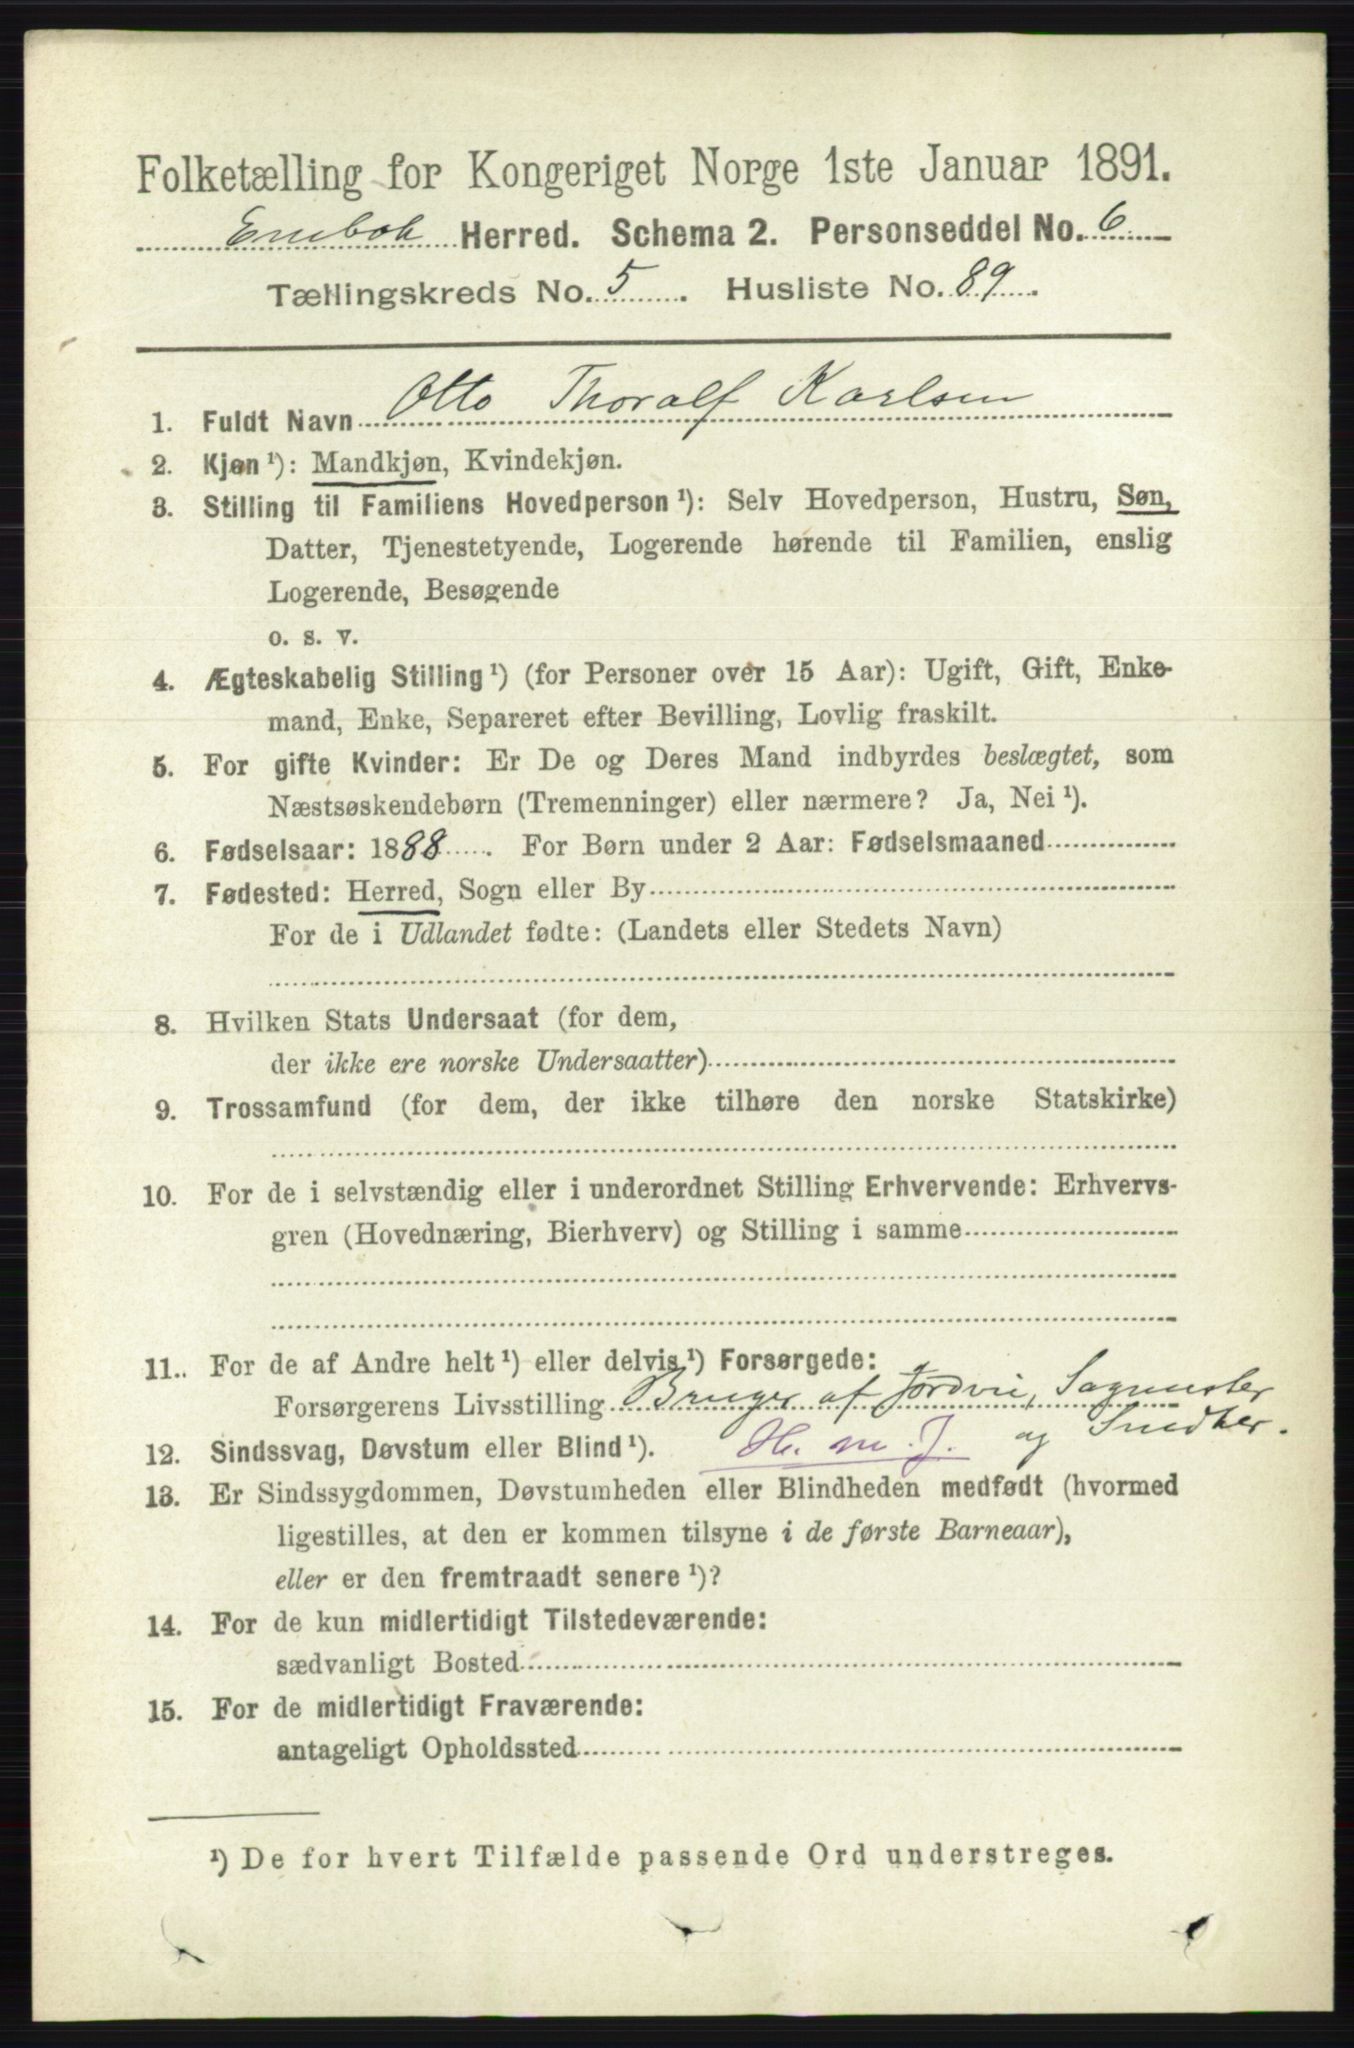 Folketælling for Kongeriget Norge 1ste Januar 1891.
Enebak Herred. Schema 2. Personseddel No. 6
Tællingskreds No. 5. Husliste No. 89.
1. Fuldt Navn Otto Thoralf Karlsen
2. Kjøn¹): Mandkjøn, Kvindekjøn.
3. Stilling til Familiens Hovedperson¹): Selv Hovedperson, Hustru, Søn,
Datter, Tjenestetyende, Logerende hørende til Familien, enslig
Logerende, Besøgende
o. s. v.
4. Ægteskabelig Stilling¹) (for Personer over 15 Aar): Ugift, Gift, Enke-
mand, Enke, Separeret efter Bevilling, Lovlig fraskilt.
5. For gifte Kvinder: Er De og Deres Mand indbyrdes beslægtet, som
Næstsøskendebørn (Tremenninger) eller nærmere? Ja, Nei¹).
6. Fødselsaar: 1888. For Børn under 2 Aar: Fødselsmaaned
7. Fødested: Herred, Sogn eller By
For de i Udlandet fødte: (Landets eller Stedets Navn)
8. Hvilken Stats Undersaat (for dem,
der ikke ere norske Undersaatter)
9. Trossamfund (for dem, der ikke tilhøre den norske Statskirke)
10. For de i selvstændig eller i underordnet Stilling Erhvervende: Erhvervs-
gren (Hovednæring, Bierhverv) og Stilling i samme
11. For de af Andre helt¹) eller delvis¹) Forsørgede:
Forsørgerens Livsstilling Bruger af Jordvei, Sagmester
og Snedker.
12. Sindssvag, Døvstum eller Blind¹). H. m. J.
13. Er Sindssygdommen, Døvstumheden eller Blindheden medfødt (hvormed
ligestilles, at den er kommen tilsyne i de første Barneaar),
eller er den fremtraadt senere¹)?
14. For de kun midlertidigt Tilstedeværende:
sædvanligt Bosted
15. For de midlertidigt Fraværende:
antageligt Opholdssted
¹) De for hvert Tilfælde passende Ord understreges.